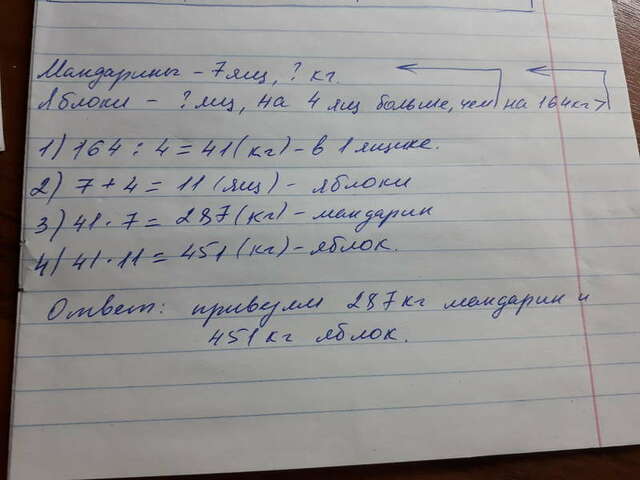 Мандарины - 7 ящ, ? кг.
Яблоки - ? ящ, на 4 ящ больше, чем на 164кг >
1) 164 : 4 = 41 (кг) - в 1 ящике.
2) 7 + 4 = 11 (ящ) - яблоки
3) 41 · 7 = 287 (кг) - мандарин
4) 41 · 11 = 451 (кг) - яблок.
Ответ: привезли 287кг мандарин и
451кг яблок.